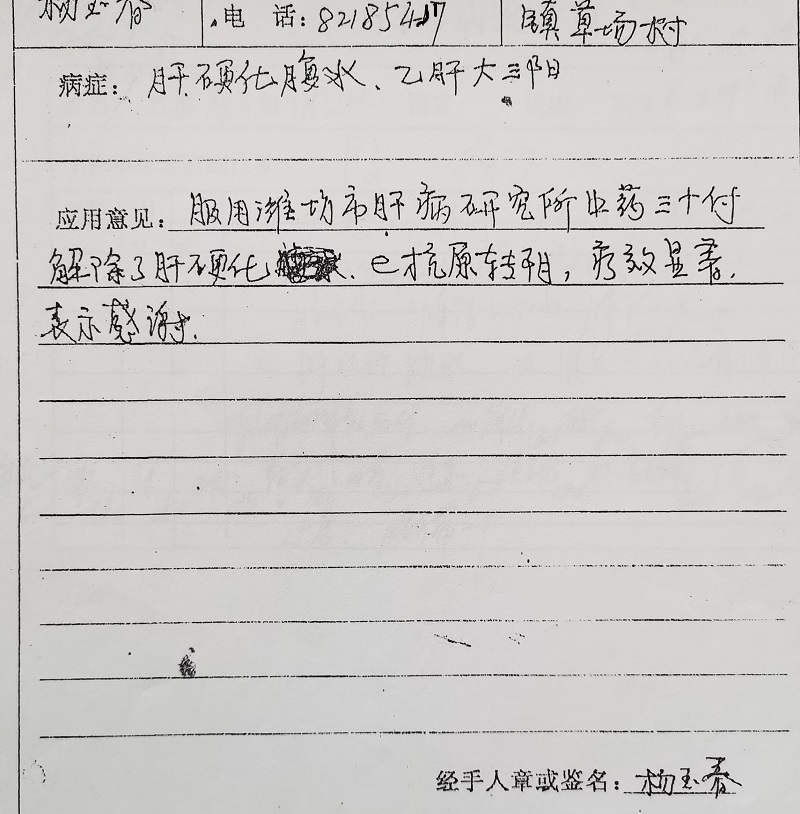 杨玉春 电 话：8218547 镇草场村
病症：肝硬化腹水、乙肝大三阳
应用意见：服用潍坊市肝病研究所中药三十付
解除了肝硬化、e抗原转阴，疗效显著，
表示感谢。
经手人章或签名：杨玉春